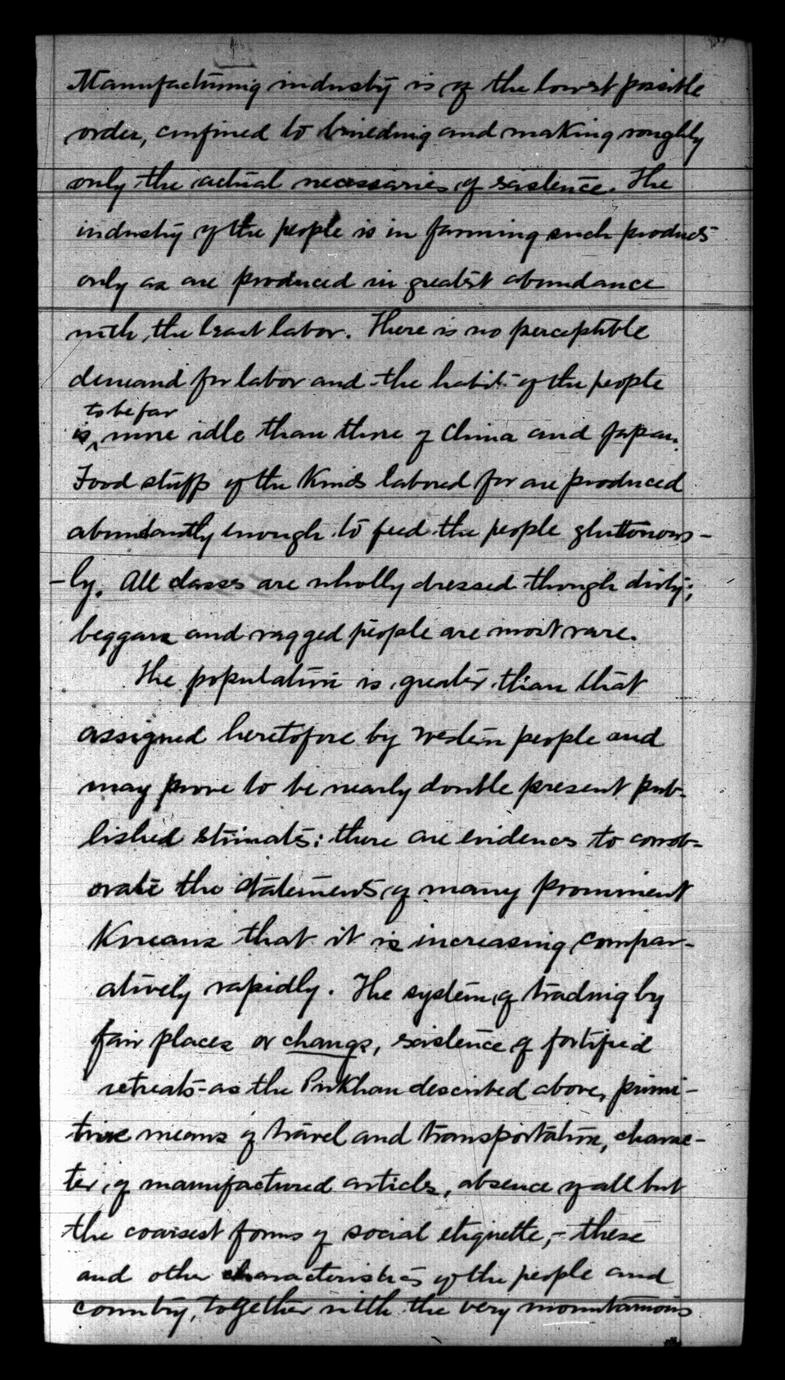 Manufacturing industry is of the lowest possible
order, confined to and making roughly
only the actual necessaries of existence. The
industry of the people is in farming such products
only as are produced in greatest abundance
with the least labor. There is no perceptible
demand for labor and the habit of the people
to be far
is more idle than those of China and Japan.
Food stuffs of the kinds labored for are produced
abundantly enough to feed the people gluttonous-
-ly. All classes are wholly dressed though dirty;
beggars and ragged people are most rare.
The population is greater than that
assigned heretofore by western people and
may prove to be nearly double present pub-
lished estimates: there are evidences to corrob-
orate the statements of many prominent
Koreans that it is increasing compar-
atively rapidly. The system of trading by
fair places or changs, existence of fortified
retreats as the Pukhan described above, primi-
tive means of travel and transportation, charac-
ter of manufactured articles, absence of all but
the coarsest forms of social etiquette,- these
and other characteristics of the people and
country, together with the very mountainous